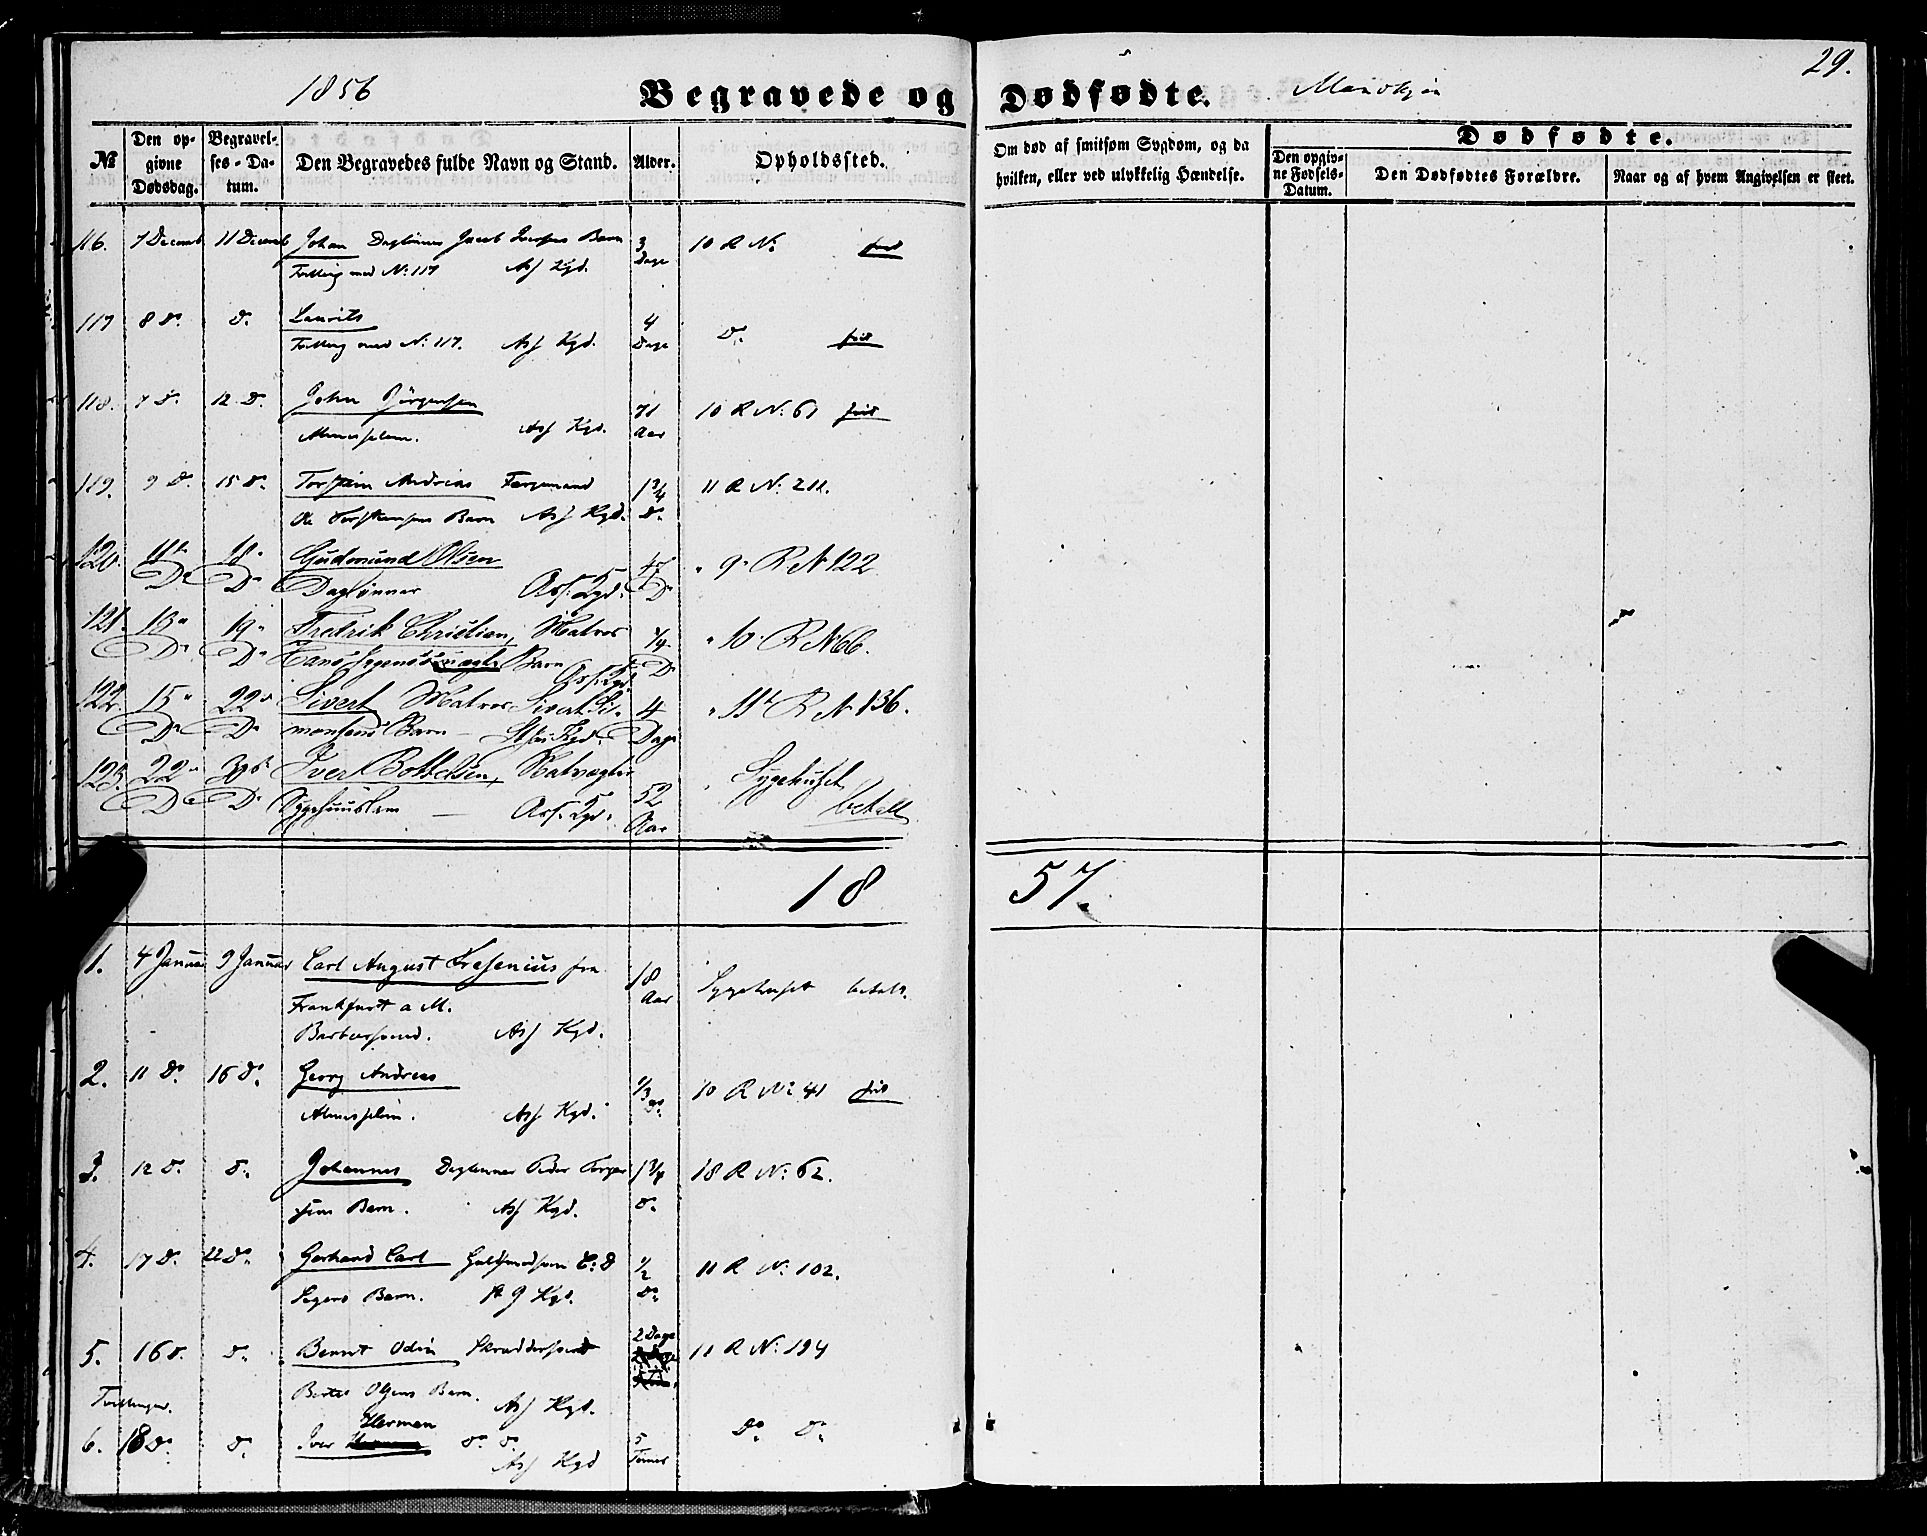 1856
Begravede og Dødfødte.
Mandkjøn
29.
№
Den opgivne Dødsdag.
Begravelses-Datum.
Den Begravedes fulde Navn og Stand.
Alder.
Opholdssted.
Om død af smitsom Sygdom, og da hvilken, eller ved ulykkelig Hændelse.
Dødfødte.
Den opgivne Fødsels-Datum.
Den Dødfødtes Forældre.
Naar og af hvem Angivelsen er skeet.
116. 7 Decemb 11 Decemb Johan Daglønner Jacob Barn 3 10 R No frit
Tvilling med N: 117 Ass Kgd. Dage
117 8 Do D. Laurits 4 Do frit
Tvilling med N: 117. Ass Kgd. Dage
118. 7 D. 12 D. John Jørgensen 71 10 R N: 61 frit
Almisselem. Ass Kgd. Aar
119. 9 D. 15 D. Torstein Andreas Færgemand 1 3/4 11 R N: 211.
Ole Torstensens Barn Ass Kgd. Do
120. 11te 18 Gudmund Olsen 9 R N 122
Do Do Daglønner Ass. Kgd. Do
121. 13 19 Fredrik Christian, Matros 1/4 10 R N 66.
Do Do Hans Barn Do
Ass. Kgd
122. 15 22 Sivert Matros Sivert Si- 4 11te R N 136.
Do Do monsens Barn Kgd. Dage
123. 22 30 Iver Bottelsen, Natvægter 52 Sygehuset
Do Do Sygehuuslem Ass. Kgd. Aar betalt
18 57.
1. 4 Januar 9 Januar Carl August Fresenius fra 18 Sygehuset betalt.
Frankfurt a M. Aar
Barbersvend. Ass Kgd.
2. 11 Do 16 Do Georg Andreas 1/3 10 R No 41 frit
Almisselem. Ass Kgd. Do
3. 12 D. D. Johannes Daglønner Peder Torger 1 3/4 18 R N: 62.
sens Barn. Ass Kgd. D.
4. 17 D. 22 Do Gerhard Carl 1/2 11 R N: 102.
Barn. Kgd. Do
5. 16 D. D. Bernt Odin Skræddersvend 2 Dage 11 R N: 194
Tvillinger. Bertel Olsens Barn. Ass Kgd.
Herman
6. 18 Do D. Iver Do Do 5 Do Do
Ass Kgd Timer